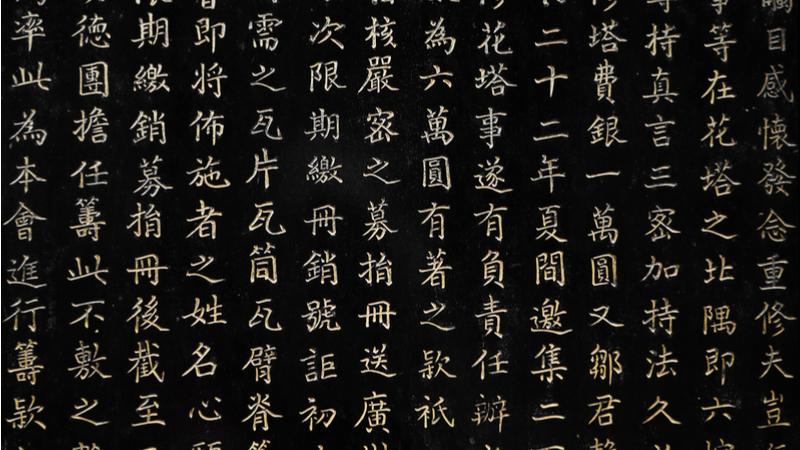 目感懷發念重修夫豈
等在花塔之北隅即六
持真言三密加持法久
塔費銀一萬圓又鄒君
二十二年夏間邀集二
花塔事遂有負責任辦
為六萬圓有著之款祇
核嚴密之募捐冊送廣
次限期繳冊銷號詎初
需之瓦片瓦筒瓦臂脊
即將佈施者之姓名心
期繳銷募捐冊後截至
德團擔任籌此不敷之
率此為本會進行籌款